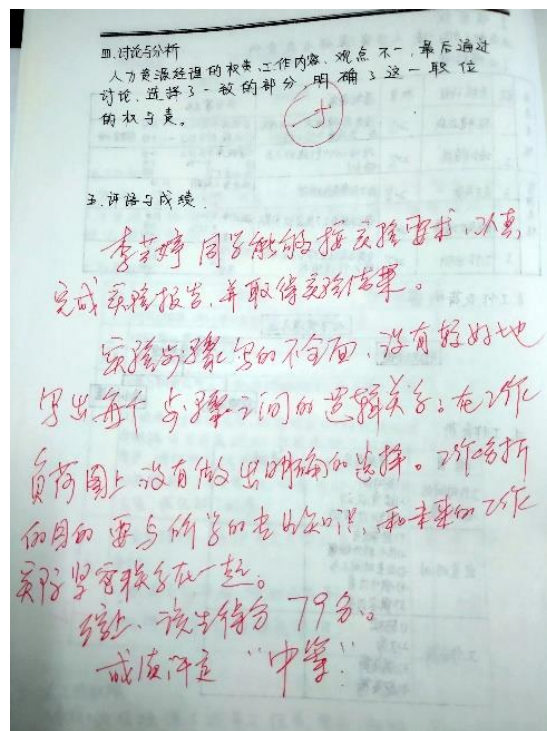 四.讨论与分析
人力资源经理的权责、工作内容、观点不一,最后通过
讨论,选择了一致的部分,明确了这一职位
的权与责。
五.评语与成绩.
李芸婷同学能够按实验要求,认真
完成实验报告,并取得实验结果。
实验步骤写的不全面,没有较好地
写出每个步骤之间的逻辑关系;在工作
负荷图上没有做出明确的选择。工作分析
的目的要与所学的专业知识,和未来的工作
实际紧密联系在一起。
综上,该生得分79分。
成绩评定“中等”